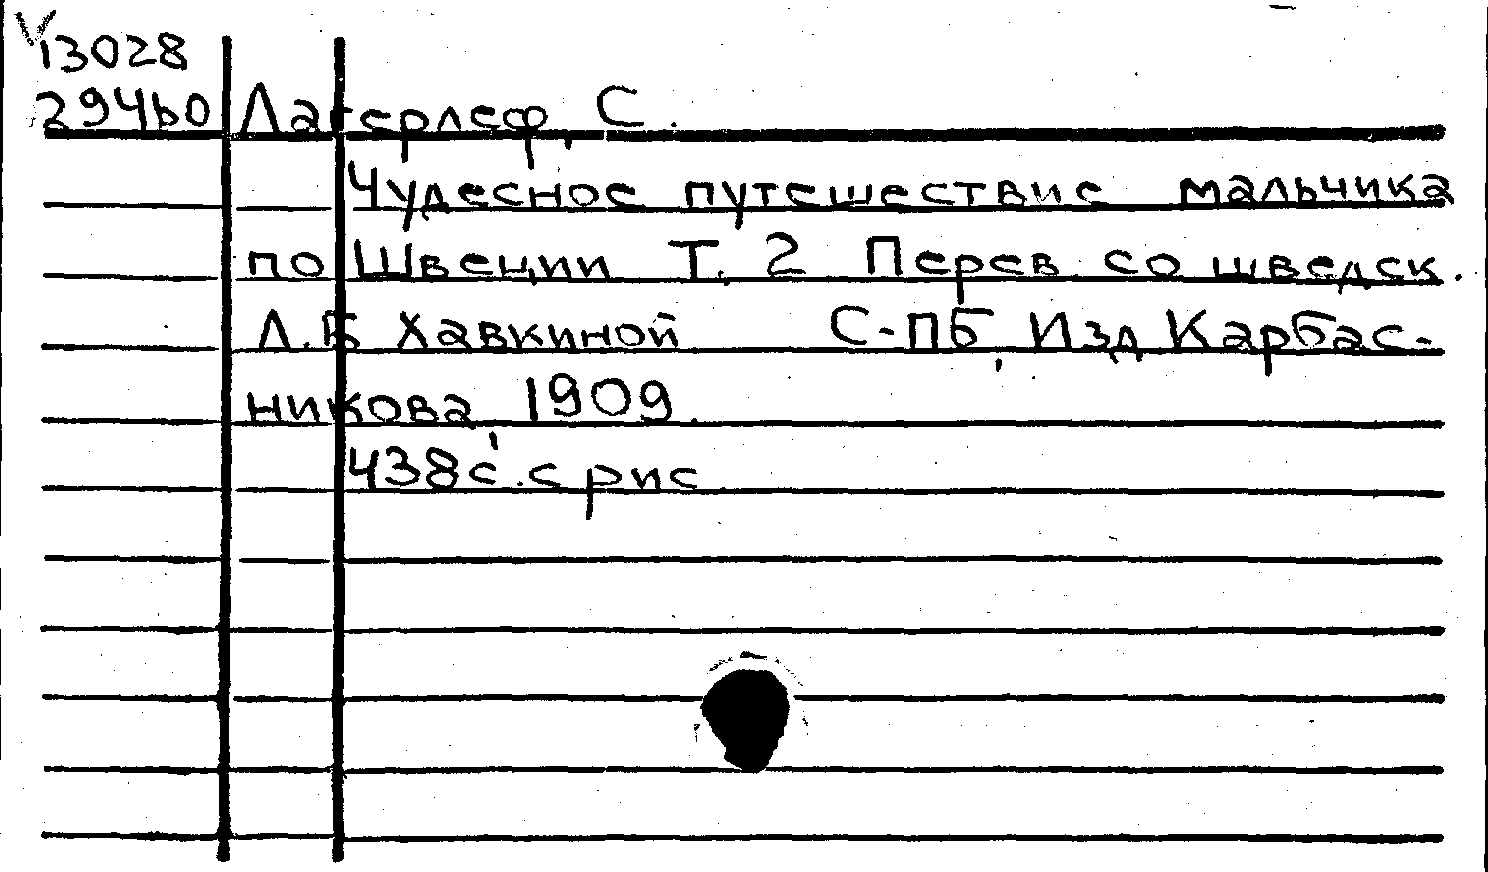 13028
29460 Лагерлеф, С.
Чудесное путешествие мальчика
по Швеции Т. 2 Перев со шведск.
Л.Б Хавкиной С-ПБ, Изд Карбас-
никова, 1909.
438с. с рис